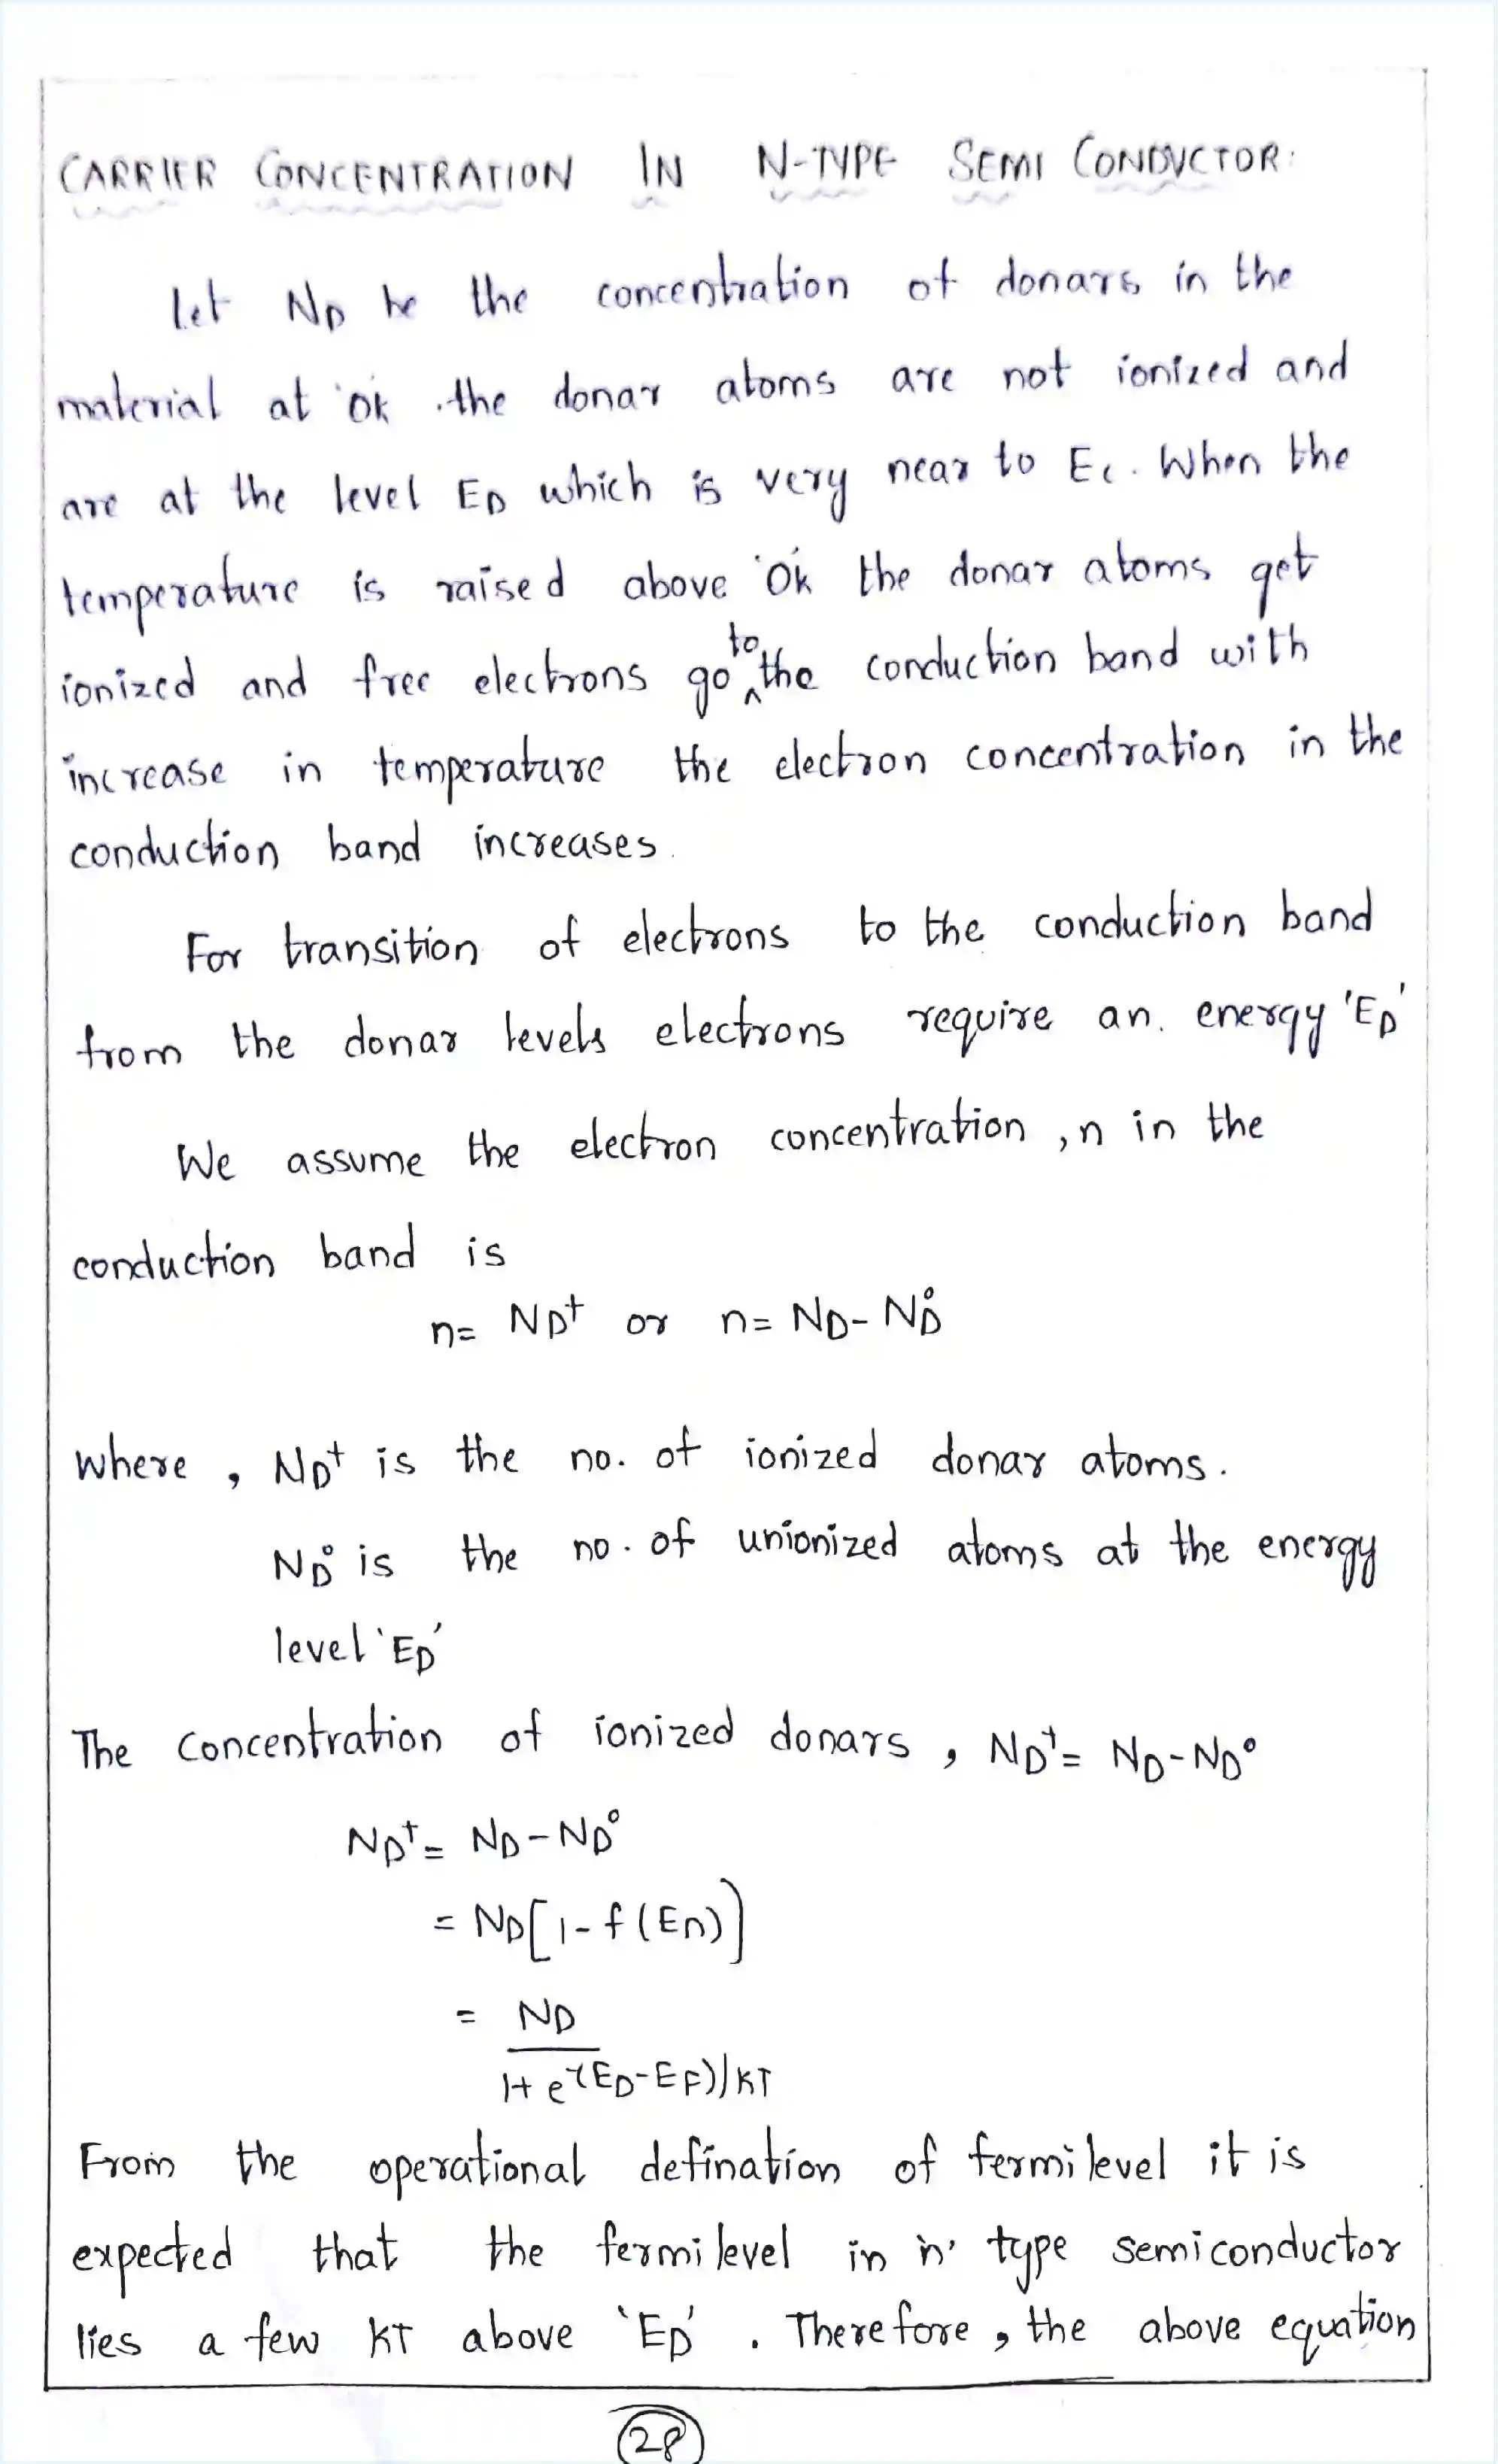 CARRIER CONCENTRATION IN N-TYPE SEMI CONDUCTOR:
Let ND be the concentration of donars in the
material at 'ok .the donar atoms are not ionized and
are at the level ED which is very near to Ec. When the
temperature is raised above 'ok' the donar atoms get
ionized and free electrons go to the conduction band with
increase in temperature the electron concentration in the
conduction band increases.
For transition of electrons to the conduction band
from the donar levels electrons require an. energy 'ED'
We assume the electron concentration ,n in the
conduction band is
n= ND⁺ or n= ND- ND⁰
where , ND⁺ is the no. of ionized donar atoms.
ND⁰ is the no. of unionized atoms at the energy
level 'ED'
The concentration of ionized donars , ND⁺= ND-ND⁰
ND⁺= ND-ND⁰
= ND[1-f(ED)]
= ND
1+ e-(ED-EF)/KT
From the operational defination of fermi level it is
expected that the fermi level in 'n' type semiconductor
lies a few KT above 'ED' . Therefore , the above equation
28